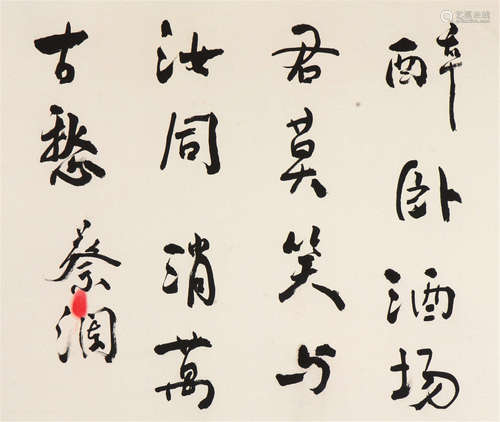 醉卧酒场
君莫笑与
汝同消万
古愁
蔡澜